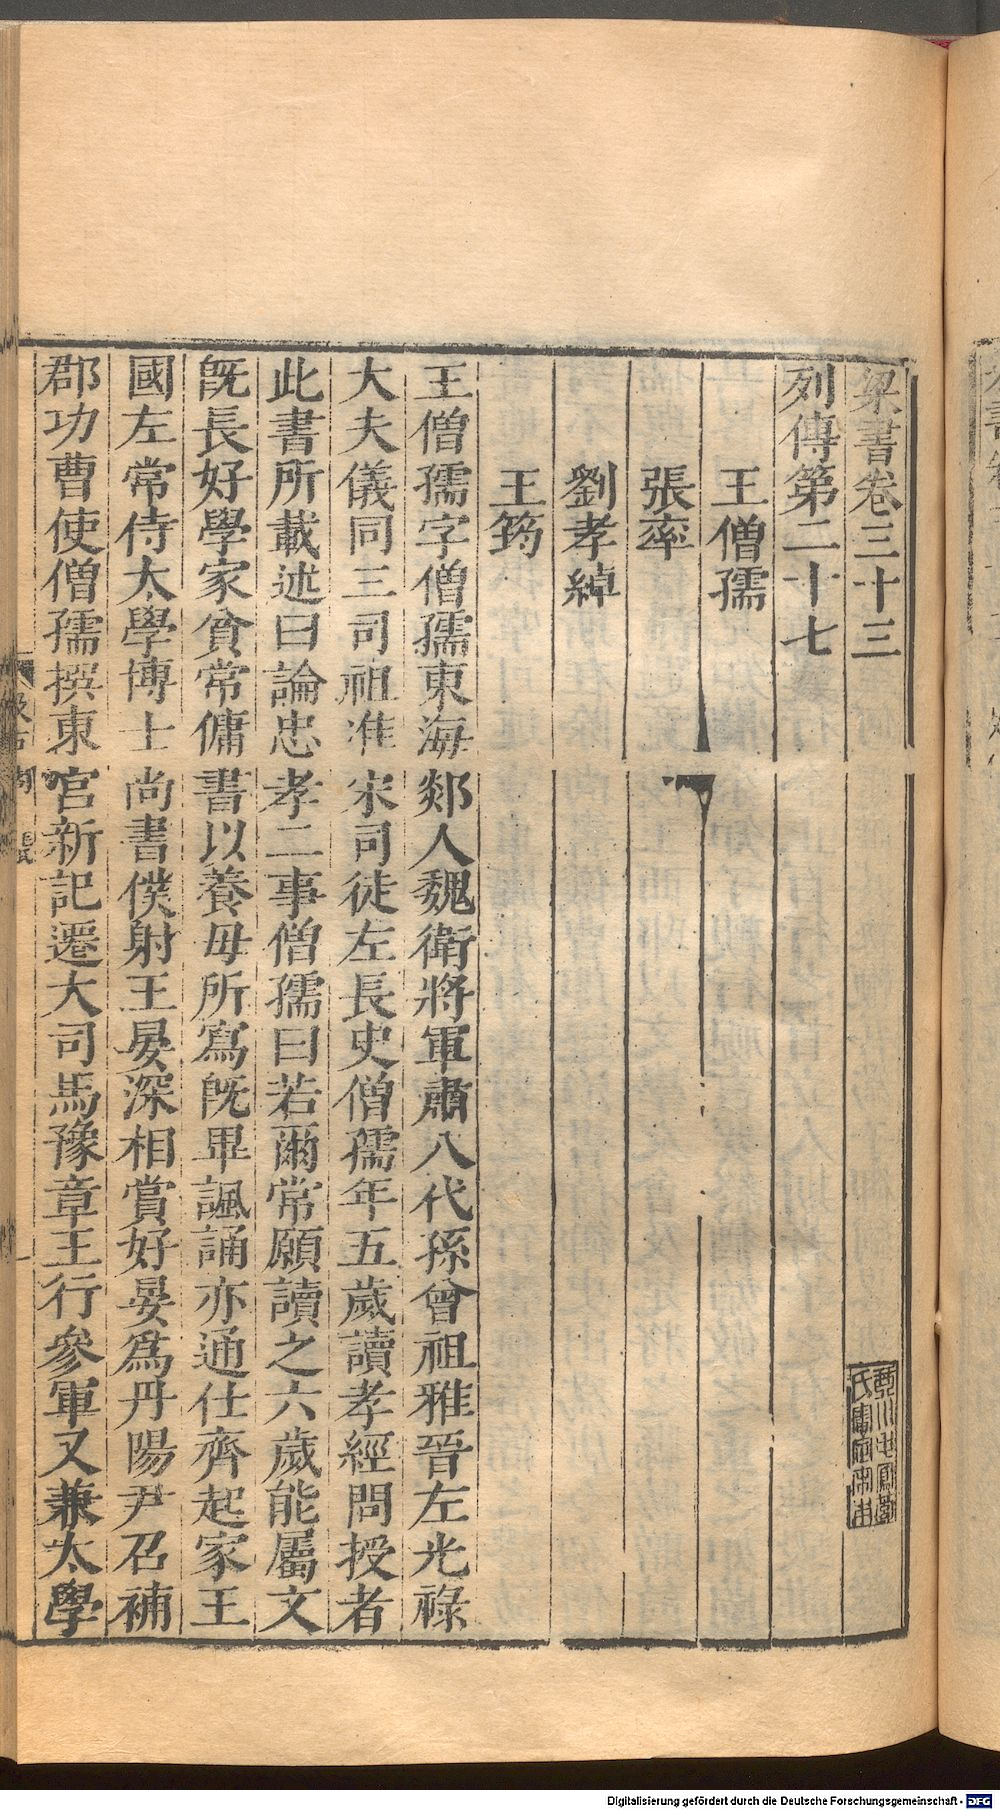 梁書卷三十三
列傳第二十七
王僧孺
張率
劉孝綽
王筠
王僧孺字僧孺東海郯人魏衛將軍肅八代孫曾祖雅晉左光祿
大夫儀同三司祖准宋司徒左長史僧孺年五歲讀孝經問授者
此書所載述曰論忠孝二事僧孺曰若爾常願讀之六歲能屬文
旣長好學家貧常傭書以養母所寫旣畢諷誦亦通仕齊起家王
國左常侍太學博士尚書僕射王晏深相賞好晏爲丹陽尹召補
郡功曹使僧孺撰東宮新記遷大司馬豫章王行參軍又兼太學
Digitalisierung gefördert durch die Deutsche Forschungsgemeinschaft - DFG